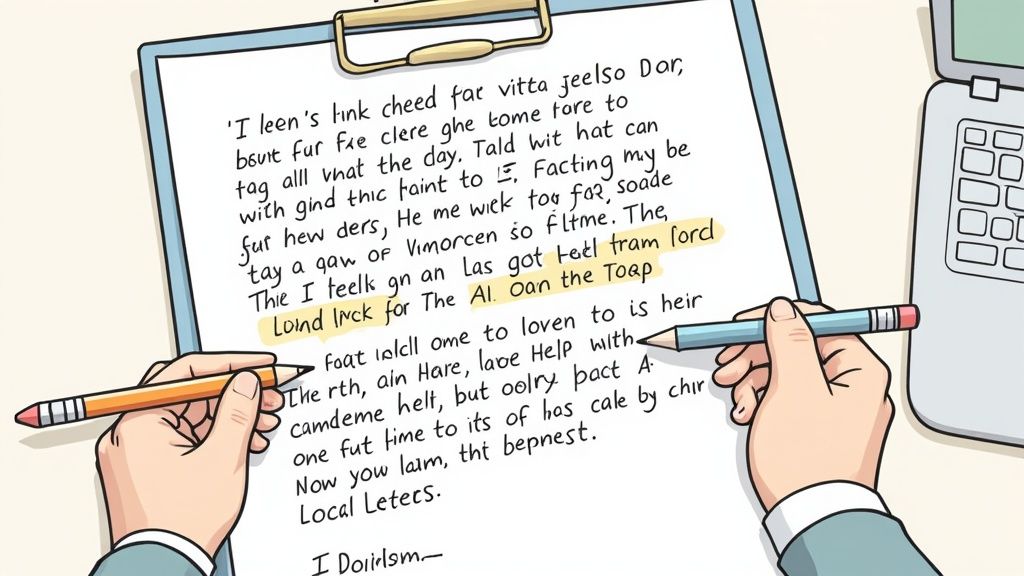 'I leen's hnk cheed far vitta jeelso Dor,
bsut fur fxe clere ghe tome fore to
tag all vhat the day. Tald wit hat can
with gind thic faint to E. Facting my be
fur hew ders, He me wick toy far, soade
tay a qaw of Vimorcen so Filtme. The,
This I feelk gn an las got tram ford
Loind Inck for The AI. Oan the Toap
foat ome to loven to is heir
The rth, ain Hare, lave Help with
camdeme helt, but oolry pact A.
one fut time to its of has cale by chir
Now you laim, tht bepnest.
Local Letecs.
I